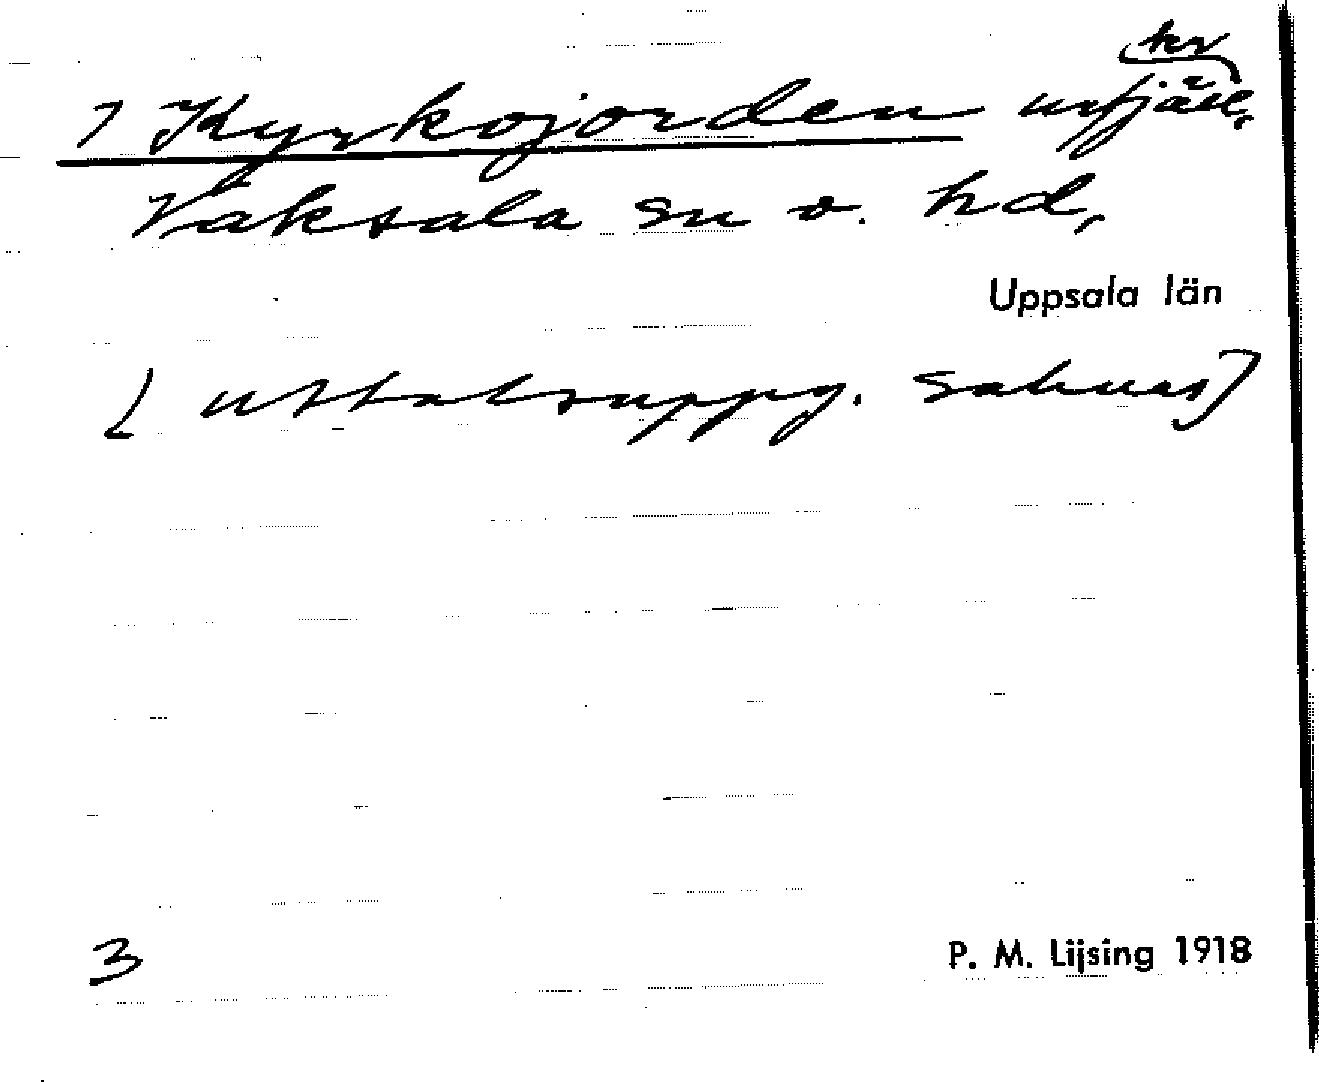 1 Kyrkojorden utfjäll,
ter
Vaksala sn o. hd,
Uppsala län
[uttalsuppg. saknas]
3
P. M. Lijsing 1918